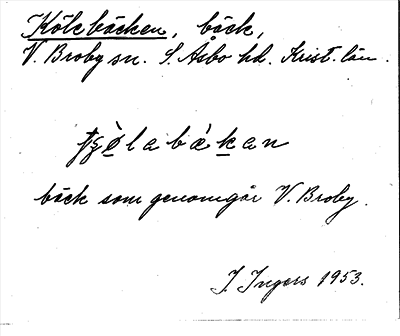 Kölebäcken, bäck,
V. Broby sn. S. Åsbo hd. Krist. län.
bäck som genomgår V. Broby.
J. Ingers 1953.